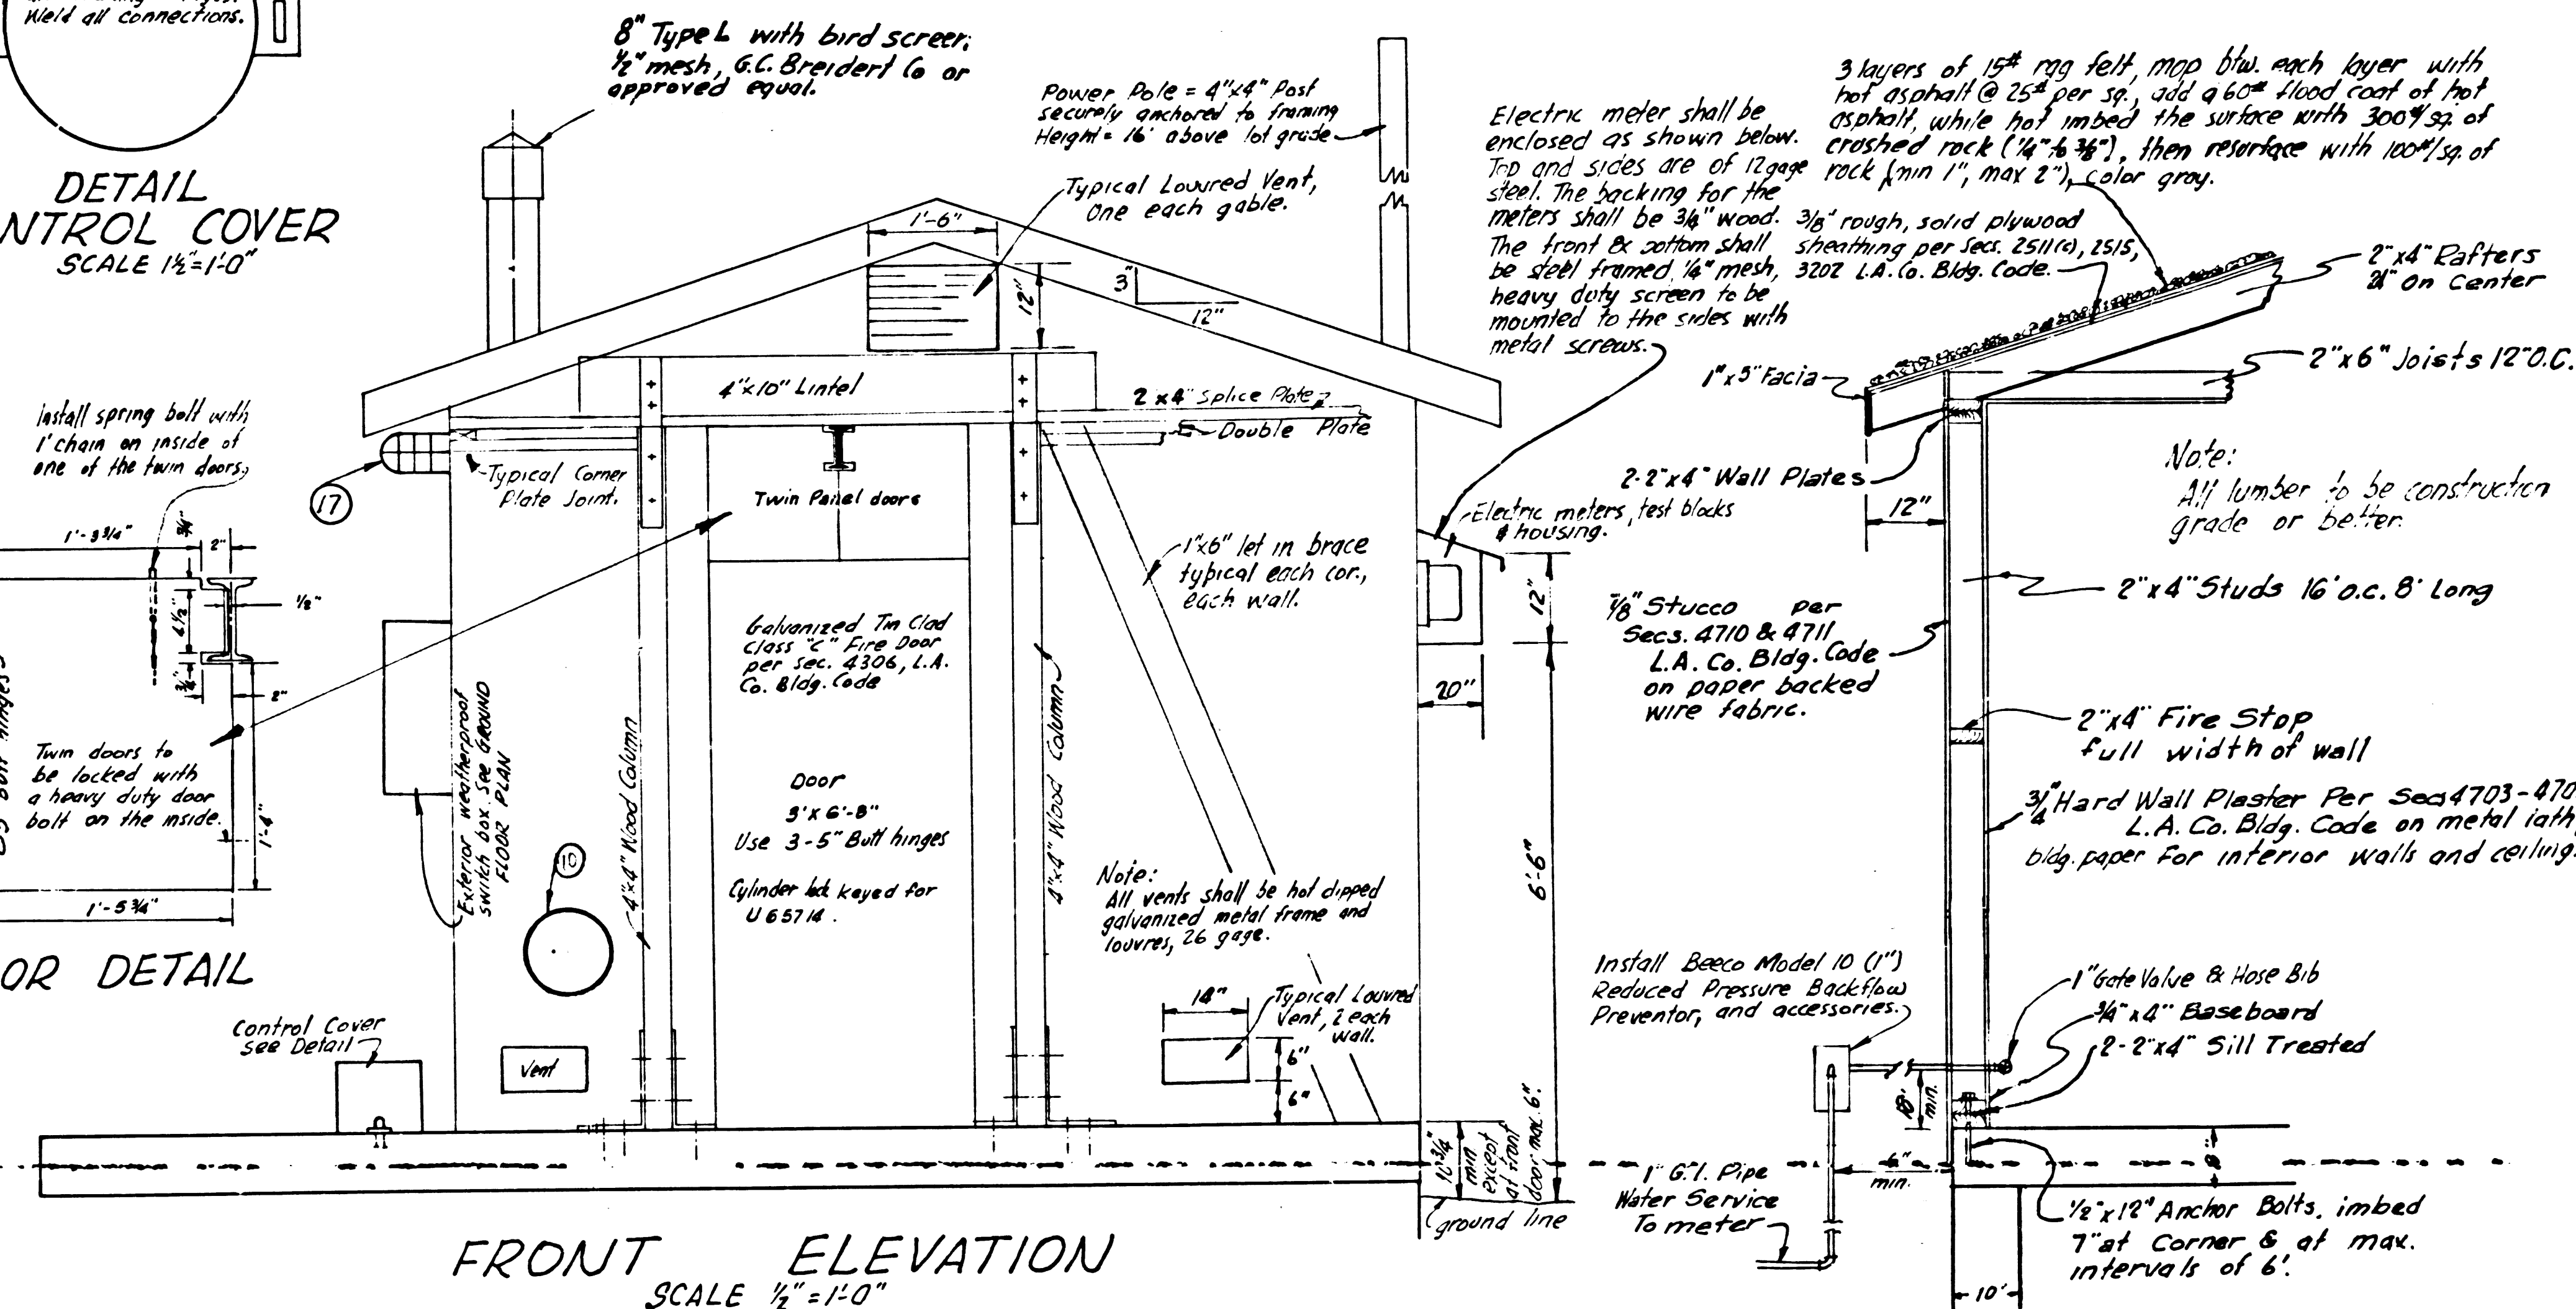 Weld all connections.
DETAIL
NTROL COVER
SCALE 1½"=1'-0"
8" Type L with bird screen,
½" mesh, G.C. Breidert Co or
approved equal.
Power Pole = 4"x4" Post
securely anchored to framing
Height = 16' above lot grade
Typical Louvred Vent,
One each gable.
1'-6"
12"
3"
12"
Electric meter shall be
enclosed as shown below.
Top and sides are of 12 gage
steel. The backing for the
meters shall be 3/4" wood.
The front & bottom shall
be steel framed, ¼" mesh,
heavy duty screen to be
mounted to the sides with
metal screws.
3 layers of 15# rag felt, mop btw. each layer with
hot asphalt @ 25# per sq., add a 60# flood coat of hot
asphalt, while hot imbed the surface with 300#/sq. of
crushed rock (¼" to 3/8"), then resurface with 100#/sq. of
rock (min 1", max 2"), color gray.
3/8" rough, solid plywood
sheathing per Secs. 2511(c), 2515,
3202 L.A. Co. Bldg. Code.
2"x4" Rafters
On Center
2"x6" Joists 12" O.C.
1"x5" Facia
2-2"x4" Wall Plates
12"
Note:
All lumber to be construction
grade or better.
2"x4" Studs 16" o.c. 8' Long
7/8" Stucco per
Secs. 4710 & 4711
L.A. Co. Bldg. Code
on paper backed
wire fabric.
2"x4" Fire Stop
full width of wall
3/4" Hard Wall Plaster Per Secs 4703-470
L.A. Co. Bldg. Code on metal lath,
bldg. paper For interior walls and ceiling.
install spring bolt with
1' chain on inside of
one of the twin doors.
1'-3 3/4"
3/4"
2"
½"
4½"
3/4"
2"
1'-4"
1'-5 3/4"
Twin doors to
be locked with
a heavy duty door
bolt on the inside.
OR DETAIL
17
Typical Corner
Plate Joint.
4"x10" Lintel
2 x4" Splice Plate
Double Plate
Twin Panel doors
1"x6" let in brace
typical each cor.,
each wall.
Electric meters, test blocks
& housing.
12"
20"
6'-6"
Galvanized Tin Clad
Class "C" Fire Door
per sec. 4306, L.A.
Co. Bldg. Code
Door
3' x 6'-8"
Use 3-5" Butt hinges
Cylinder lock keyed for
U65714.
Exterior weatherproof
switch box. See GROUND
FLOOR PLAN
10
4"x4" Wood Column
4"x4" Wood Column
Note:
All vents shall be hot dipped
galvanized metal frame and
louvres, 26 gage.
14"
Typical Louvred
Vent, 2 each
wall.
6"
6"
Control Cover
see Detail
Vent
10 3/4"
min
except
at front
door max. 6".
ground line
FRONT ELEVATION
SCALE ½"=1'-0"
Install Beeco Model 10 (1")
Reduced Pressure Backflow
Preventor, and accessories.
1" Gate Valve & Hose Bib
3/4"x4" Baseboard
2-2"x4" Sill Treated
min.
6"
min.
8"
1" G.I. Pipe
Water Service
To meter
½"x12" Anchor Bolts, imbed
7" at Corner & at max.
intervals of 6'.
10"